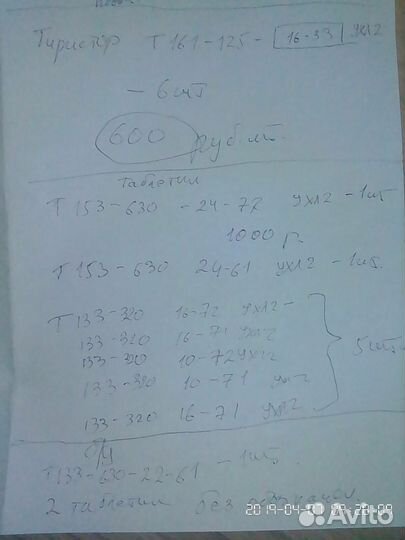 Тиристор Т 161-125- 16-33 УХЛ2
- 6 шт
600 руб. шт.
таблетки
Т 153-630 -24-72 УХЛ2 -1шт
1000 р.
Т 153-630 24-61 УХЛ2 -1шт.
Т 133-320 16-72 УХЛ2-
133-320 16-71 УХЛ2
133-320 10-72 УХЛ2
133-320 10-71 УХЛ2
133-320 16-71 УХЛ2
5 шт.
Б/у
Т133-630-22-61 -1шт.
2 таблетки без
Avito